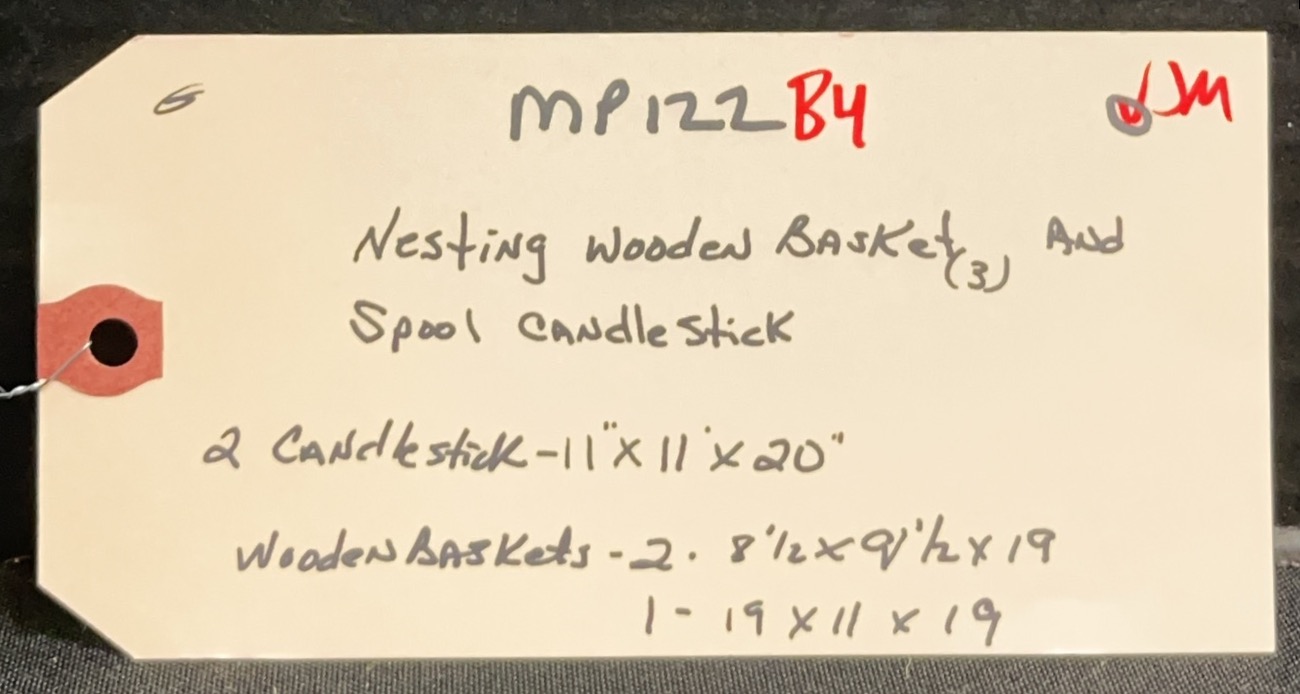 G MP122 B4 JM
Nesting Wooden Basket (3) And
Spool Candlestick
2 Candlestick - 11" x 11" x 20"
Wooden Baskets - 2. 8 1/2 x 9 1/2 x 19
1 - 19 x 11 x 19